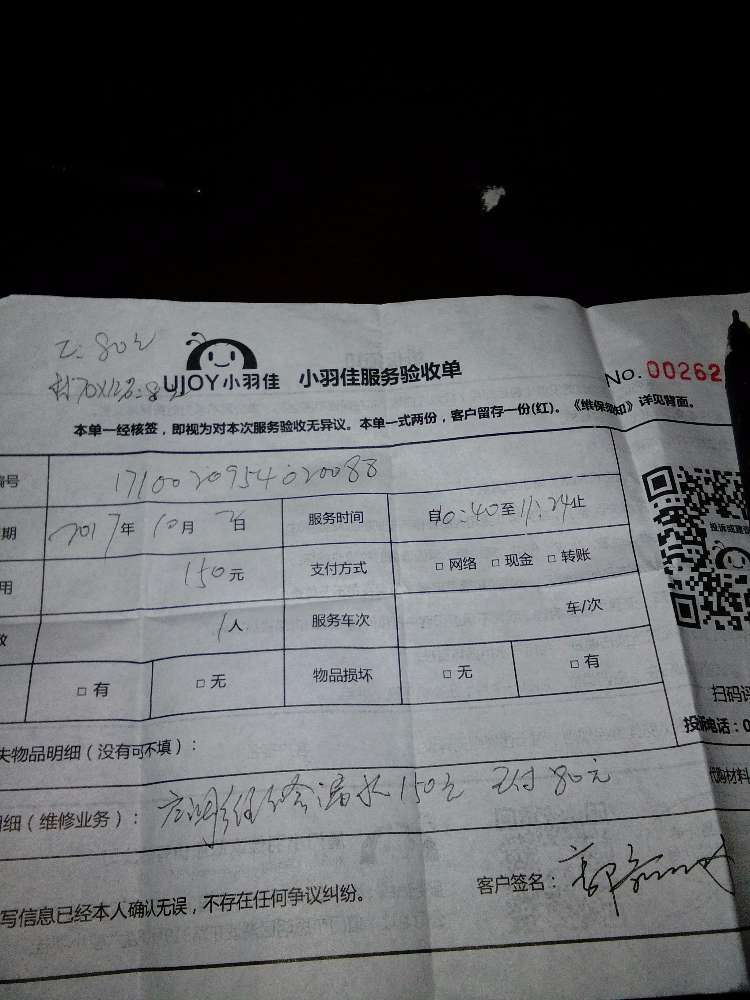 工:80元
UJOY小羽佳 小羽佳服务验收单
No.00262
本单一经核签，即视为对本次服务验收无异议。本单一式两份，客户留存一份(红)。《维保须知》详见背面。
编号 1710020954020088
期 2017年 10月 2日 服务时间 自10:40至11:24止
用 150元 支付方式 □ 网络 □ 现金 □ 转账
数 1人 服务车次 车/次
□ 有 □ 无 物品损坏 □ 无 □ 有
失物品明细（没有可不填）：
明细（维修业务）： 漏水150元 已付80元
写信息已经本人确认无误，不存在任何争议纠纷。
客户签名：
投诉或建议
扫码评
投诉电话：0
代购材料